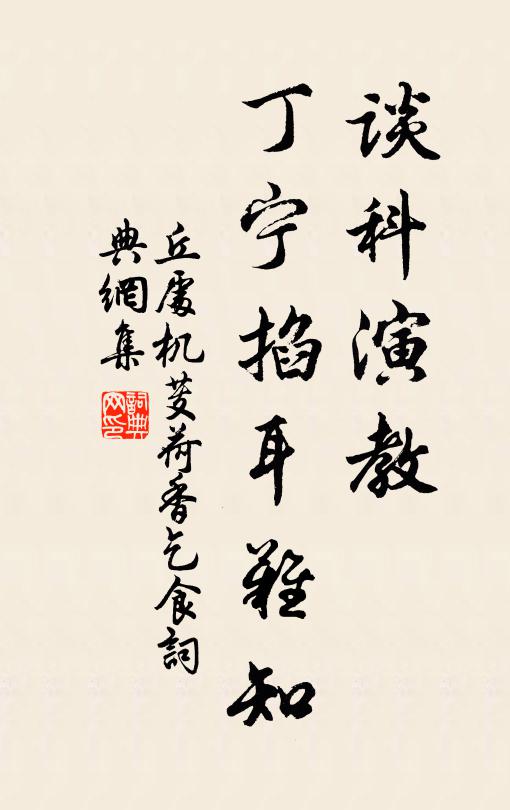 谈科演教
丁宁掐耳难知
丘處机芰荷香乞食詞
典網集
詞典网印